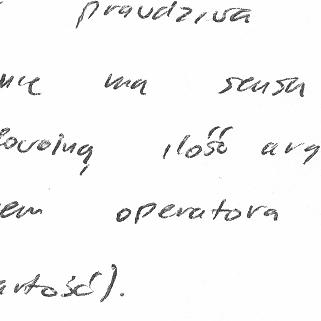 prawdziwa
nie ma sensu
dowolną ilość arg
em operatora
artość).